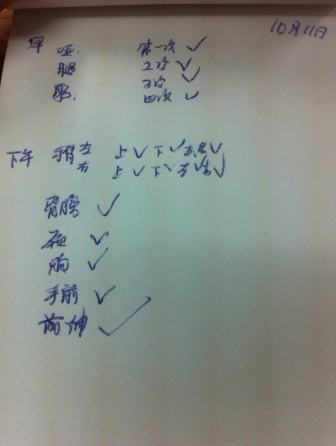 10月11日
早 哑. 第一次 ✓
腿 2次 ✓
3次 ✓
四次 ✓
下午 手臂 左 上 ✓ 下 ✓ 左右 ✓
右 上 ✓ 下 ✓ 左 ✓ 右 ✓
肩膀 ✓
颈 ✓
胸 ✓
手前 ✓
前伸 ✓